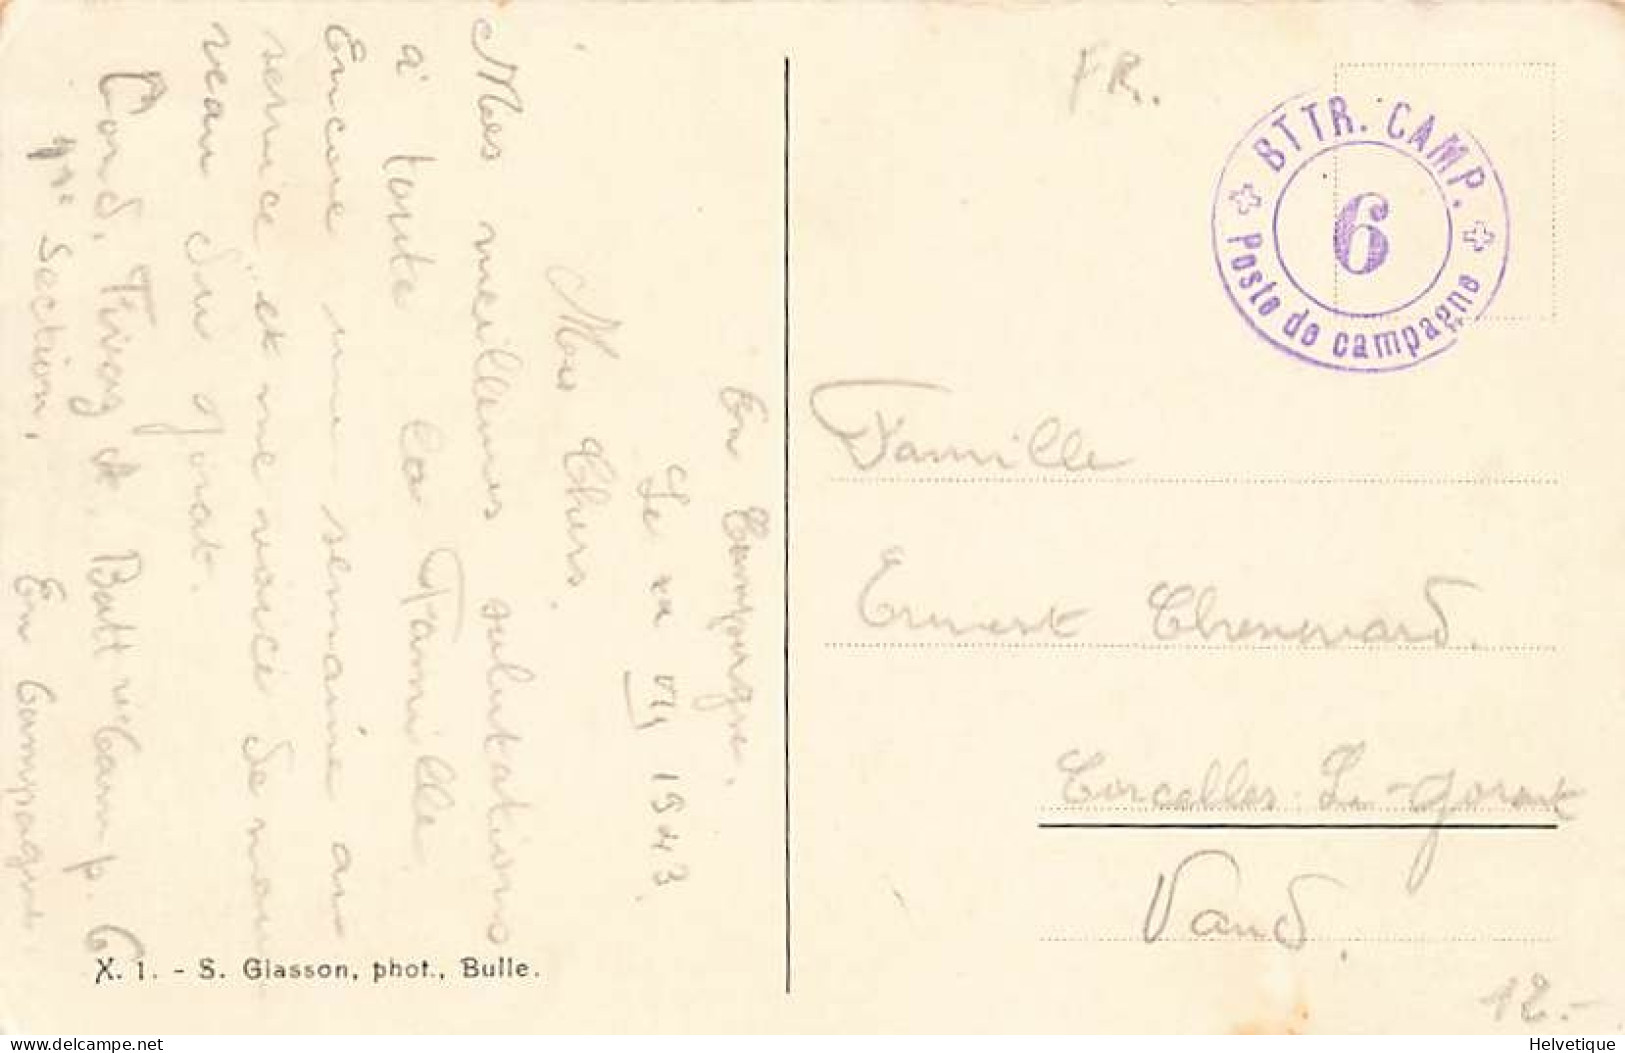 En Campagne.
Le VII 1943
Mes Chers.
Mes meilleures salutations
à toute la Famille
Encore une semaine au
service, et me voici de nou
veau du Jorat.
Cond. Batt. Camp. 6
Section. En Campagne.
X. 1. - S. Glasson, phot., Bulle.
FR.
BTTR. CAMP.
6
Poste de campagne
Famille
Ernest Chenevard.
Corcelles L-Jorat
Vaud.
12.-
delcampe.net
Helvetique